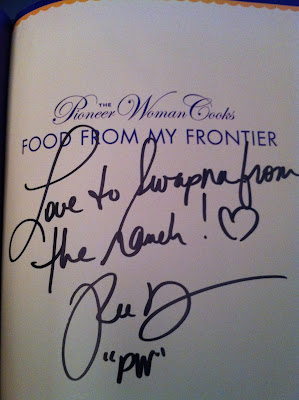 THE
Pioneer Woman Cooks
FOOD FROM MY FRONTIER
Love to Swapna from
the Ranch! ♡
Ree D
"PW"